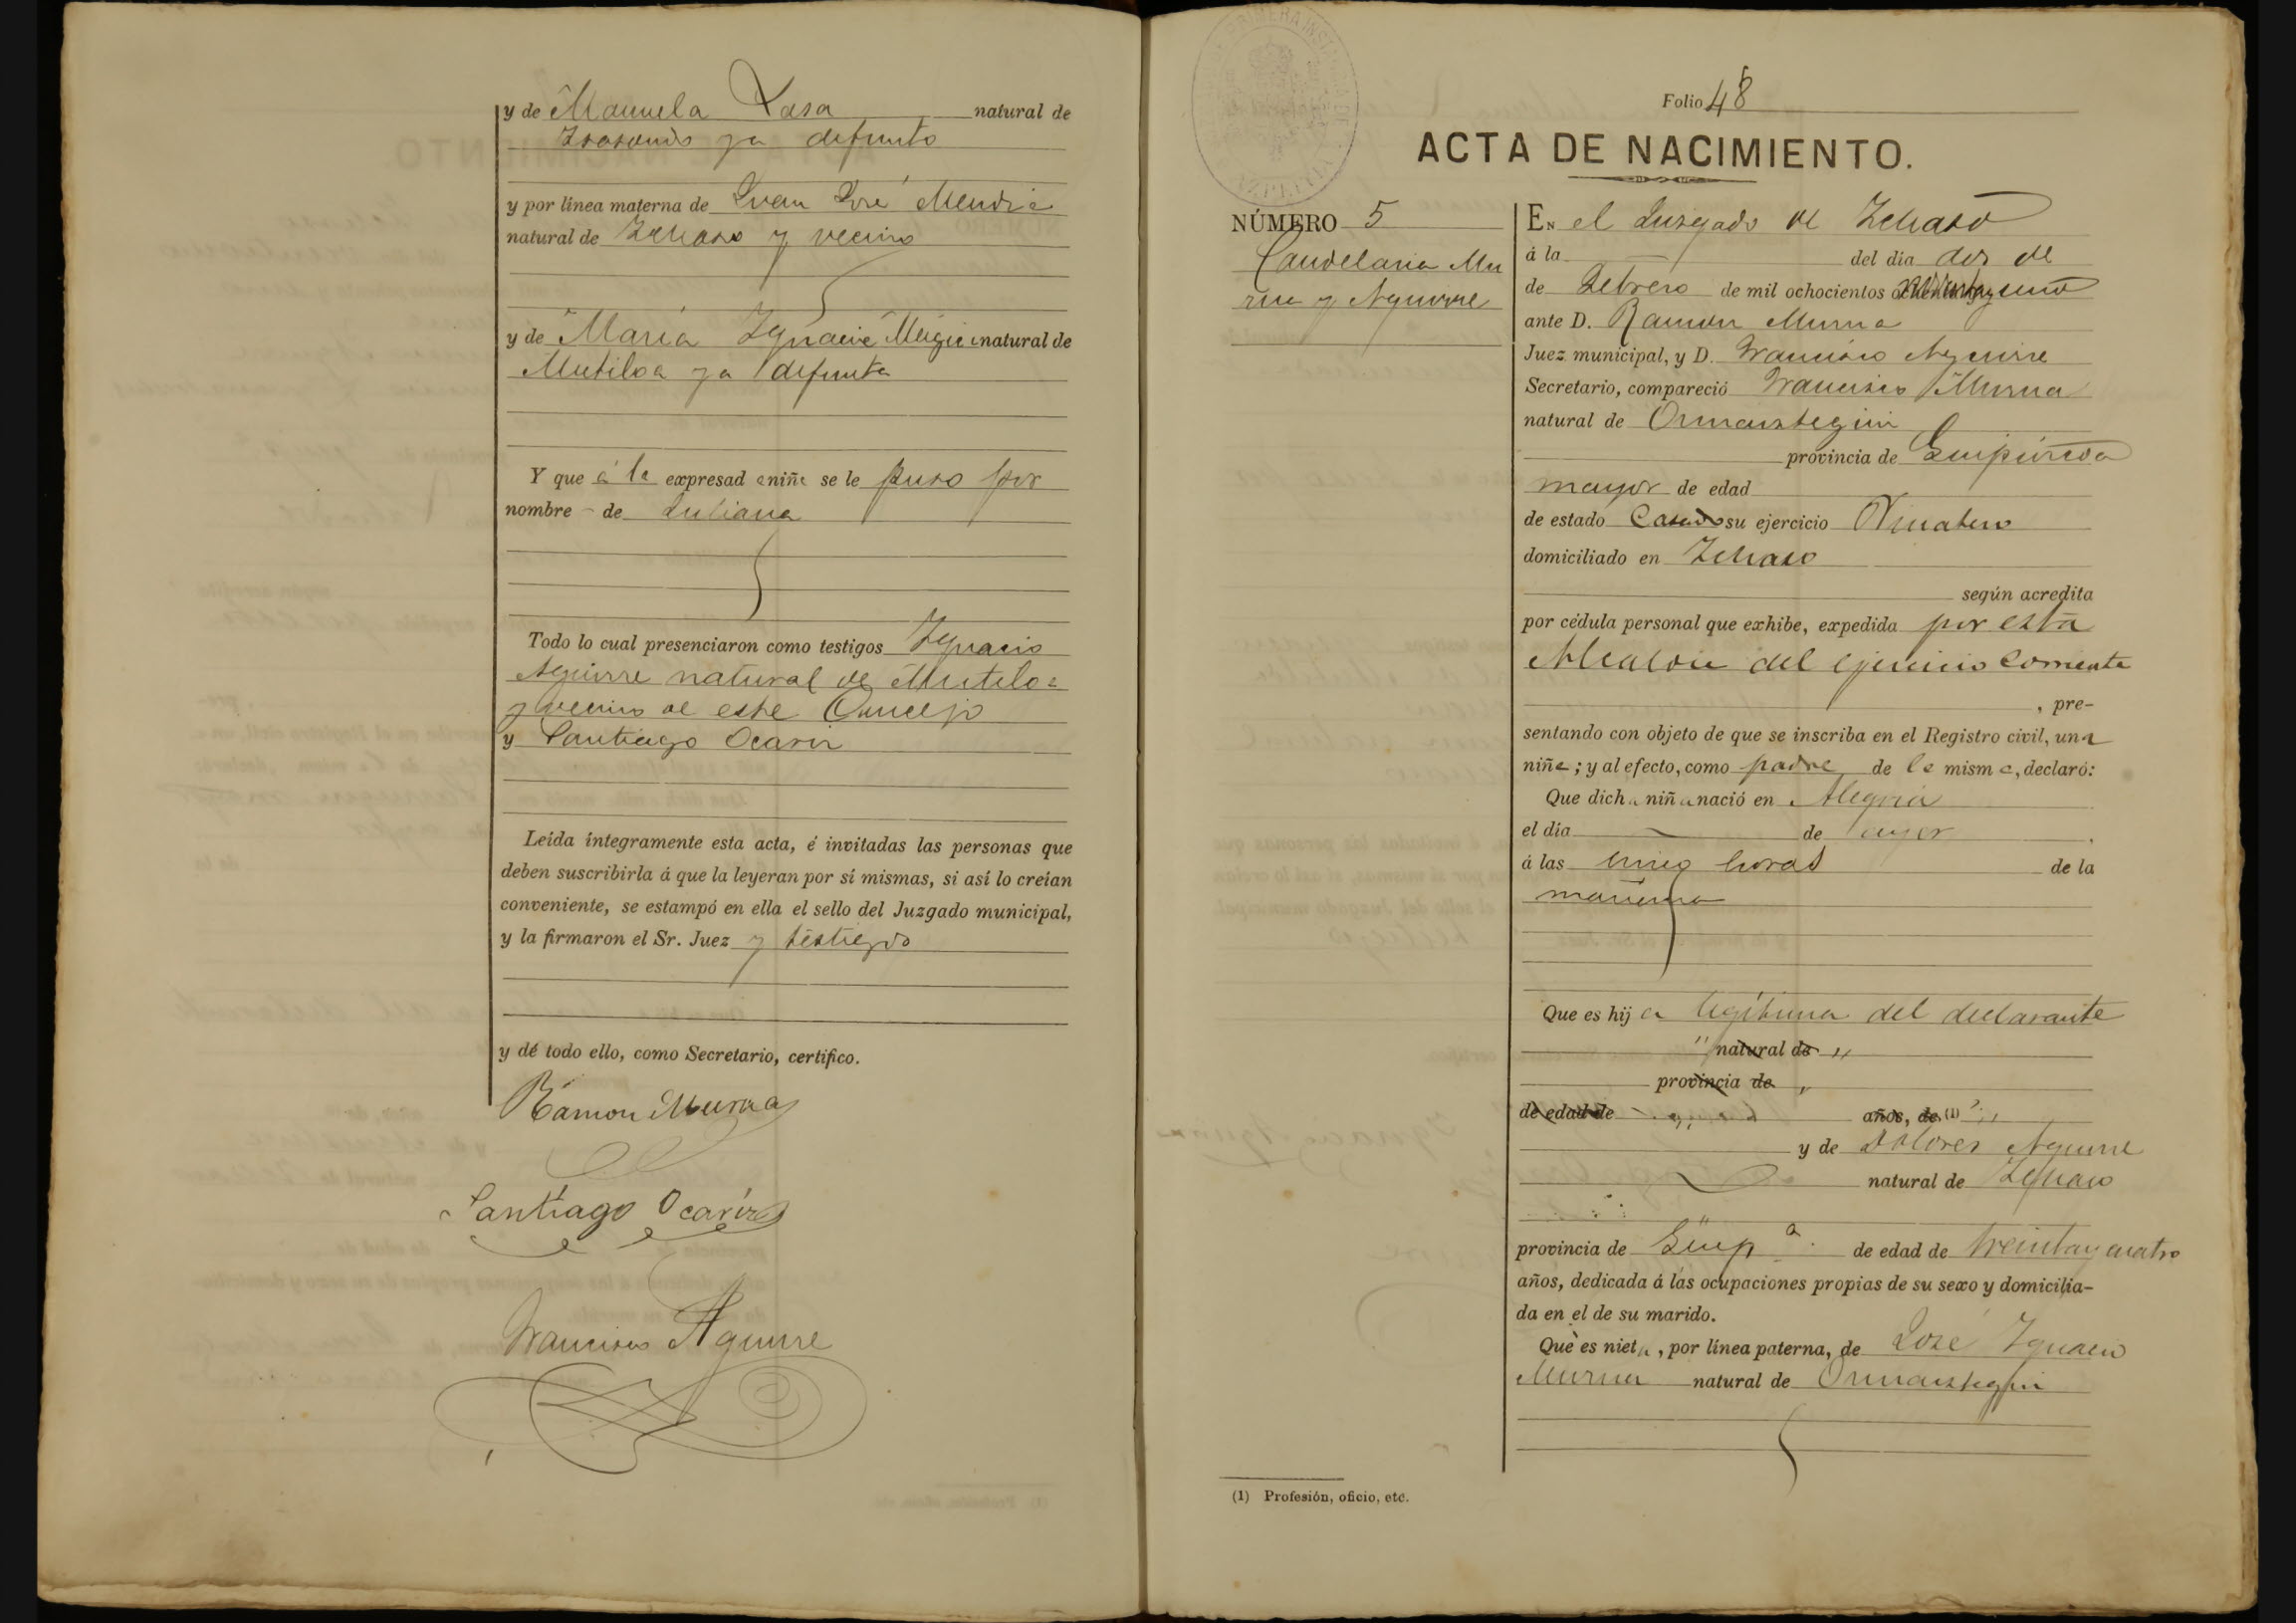 y de Manuela Lasa natural de
ya defunto
y por línea materna de Juan José Mendia
natural de Ichaso y vecino
y de María Ygnacia natural de
Mutiloa ya defunta
Y que á la expresad a niña se le puso por
nombre - de Juliana
Todo lo cual presenciaron como testigos Ygnacio
Aguirre natural de Mutiloa
y vecino de este Concejo
y Santiago Ocariz
Leída íntegramente esta acta, é invitadas las personas que
deben suscribirla á que la leyeran por sí mismas, si así lo creían
conveniente, se estampó en ella el sello del Juzgado municipal,
y la firmaron el Sr. Juez y testigos
y de todo ello, como Secretario, certifico.
Ramon Murua
Santiago Ocariz
Francisco Aguirre
Folio 48
ACTA DE NACIMIENTO.
NÚMERO 5
Candelaria Mu
rua y Aguirre
EN el Juzgado de Ichaso
á la del día dos de
de Febrero de mil ochocientos noventa y uno
ante D. Ramon Murua
Juez municipal, y D. Francisco Aguirre
Secretario, compareció Francisco Murua
natural de Ormaiztegui
provincia de Guipúzcoa
mayor de edad
de estado Casado su ejercicio
domiciliado en Ichaso
según acredita
por cédula personal que exhibe, expedida por esta
Alcaldia del ejercicio corriente
, pre-
sentando con objeto de que se inscriba en el Registro civil, una
niña; y al efecto, como padre de la misma, declaró:
Que dicha niña nació en Alegria
el día de ayer
á las cinco horas de la
mañana
Que es hij a legítima del declarante
" natural de "
provincia de "
de edad de años, de (1) "
y de Dolores Aguirre
natural de Ichaso
provincia de Guip.a de edad de treinta y cuatro
años, dedicada á las ocupaciones propias de su sexo y domicilia-
da en el de su marido.
Que es nieta, por línea paterna, de José Ygnacio
Murua natural de Ormaiztegui
(1) Profesión, oficio, etc.